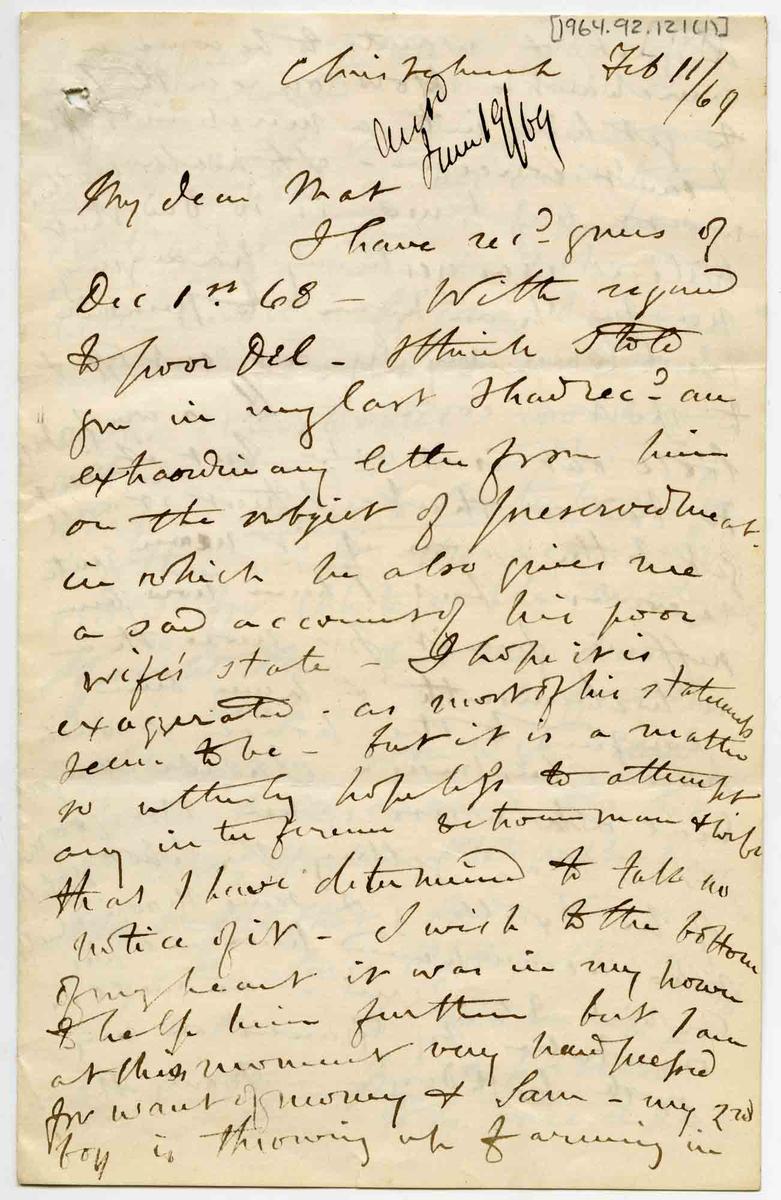 [1964.92.121(1)]
Christchurch Feb 11/69
Ansd
June 19/69
My dear Mat
I have recd yours of
Dec 1st. 68 - With regard
to poor Del - I think I told
you in my last I had recd an
extraordinary letter from him
on the subject of preserved meat.
in which he also gives me
a sad account of his poor
wife's state - I hope it is
exaggerated - as most of his statements
seem to be - but it is a matter
so utterly hopeless to attempt
any interference between man & wife
that I have determined to take no
notice of it - I wish to the bottom
of my heart it was in my power
to help him further but I am
at this moment very hard pressed
for want of money & Sam - my 2nd
boy is throwing up farming in